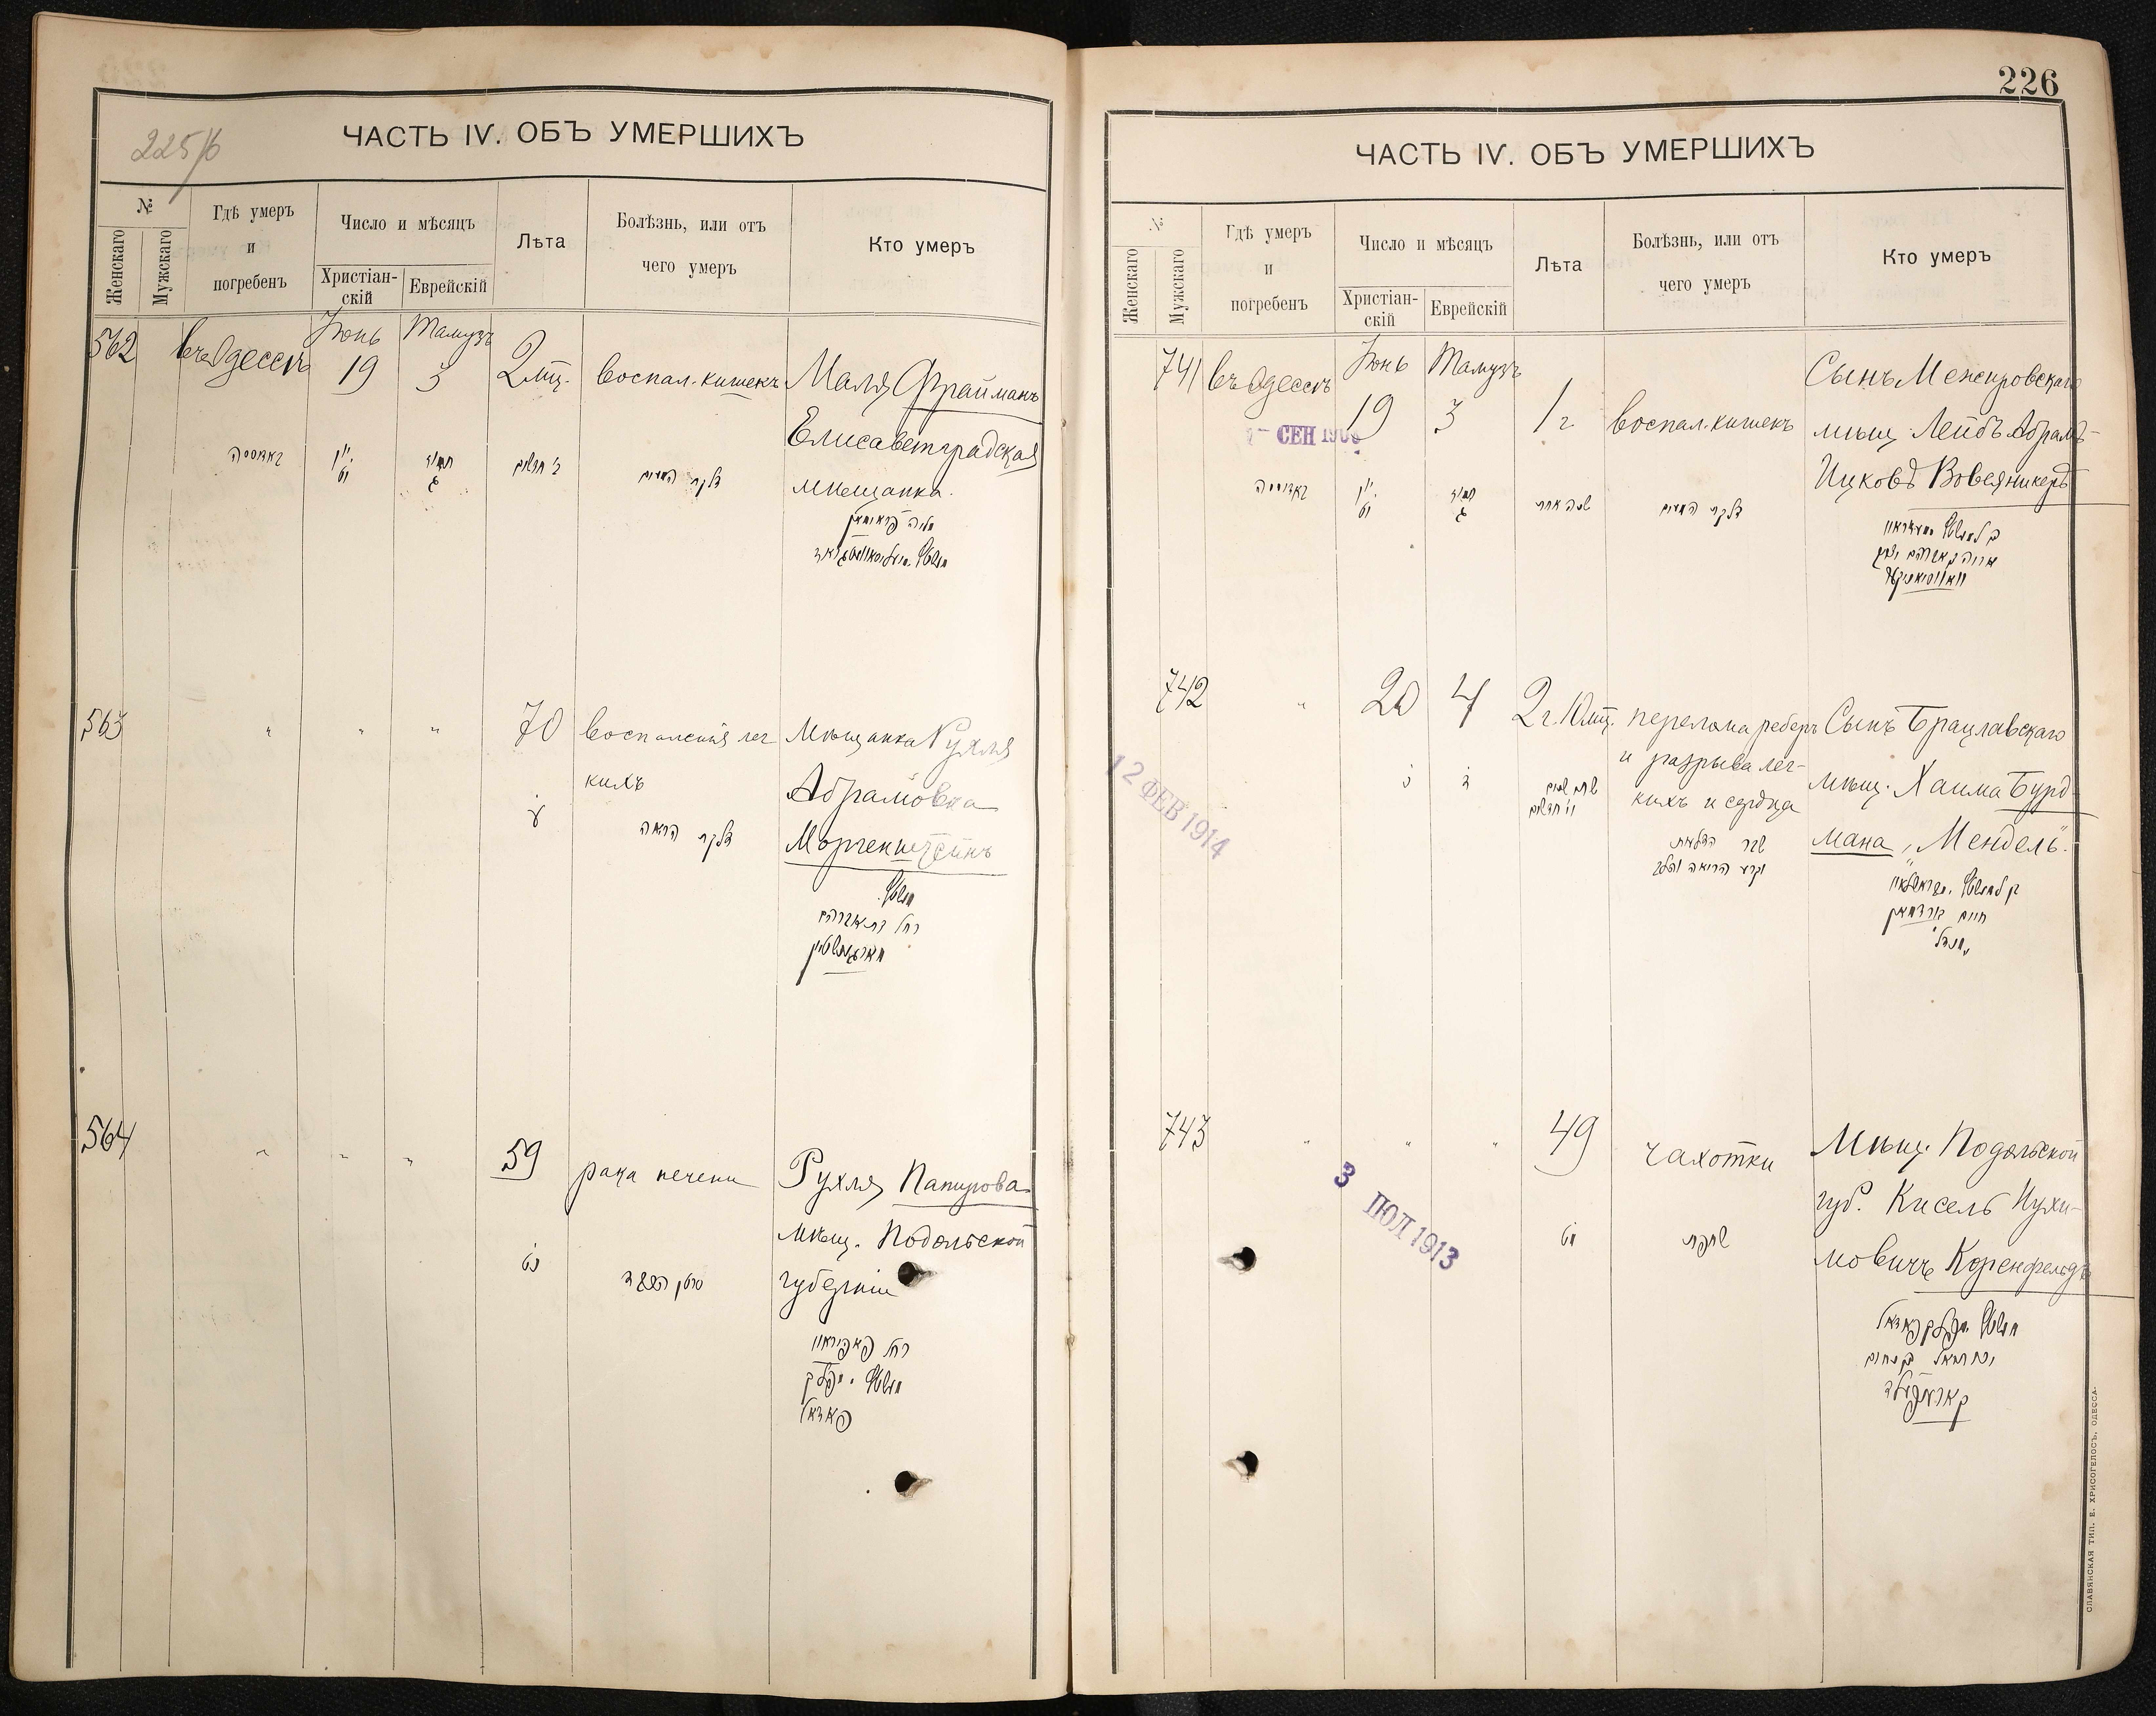 225/б
ЧАСТЬ IV. ОБЪ УМЕРШИХЪ
№
Женскаго
Мужскаго
Гдѣ умеръ
и
погребенъ
Число и мѣсяцъ
Христіан-
скій
Еврейскій
Лѣта
Болѣзнь, или отъ
чего умеръ
Кто умеръ
562
въ Одессѣ
Іюнь
19
Тамузъ
3
2 мц.
воспал. кишекъ
Маля Фрайманъ
Елисаветградская
мѣщанка.
דלקת המעים
563
"
"
"
70
воспаленія лег
кихъ
Мѣщанка Рухля
Абрамовна
Моргенштейнъ
ע
דלקת הריאה
רחל בת אברהם
מארגענשטיין
564
"
"
"
59
рака печени
Рухля Папирова
мѣщ. Подольской
губерніи
נט
סרטן הכבד
226
ЧАСТЬ IV. ОБЪ УМЕРШИХЪ
№
Женскаго
Мужскаго
Гдѣ умеръ
и
погребенъ
Число и мѣсяцъ
Христіан-
скій
Еврейскій
Лѣта
Болѣзнь, или отъ
чего умеръ
Кто умеръ
741
въ Одессѣ
Іюнь
19
Тамузъ
3
1 г
воспал. кишекъ
Сынъ Межировскаго
мѣщ. Лейбъ Абрамъ-
Ицковъ
СЕН
שנה אחת
דלקת המעים
742
"
20
4
2 г. 10 мц.
перелома реберъ
и разрыва лег-
кихъ и сердца
Сынъ Брацлавскаго
мѣщ. Хаима Бурд-
мана, "Мендель".
כ
ד
חיים בורדמאן
12 ФЕВ 1914
743
"
"
"
49
чахотки
Мѣщ. Подольской
губ. Кисель Нухи-
мовичъ Коренфельдъ
שחפת
3 ІЮЛ 1913
СЛАВЯНСКАЯ ТИП. Е. ХРИСОГЕЛОСЪ, ОДЕССА.